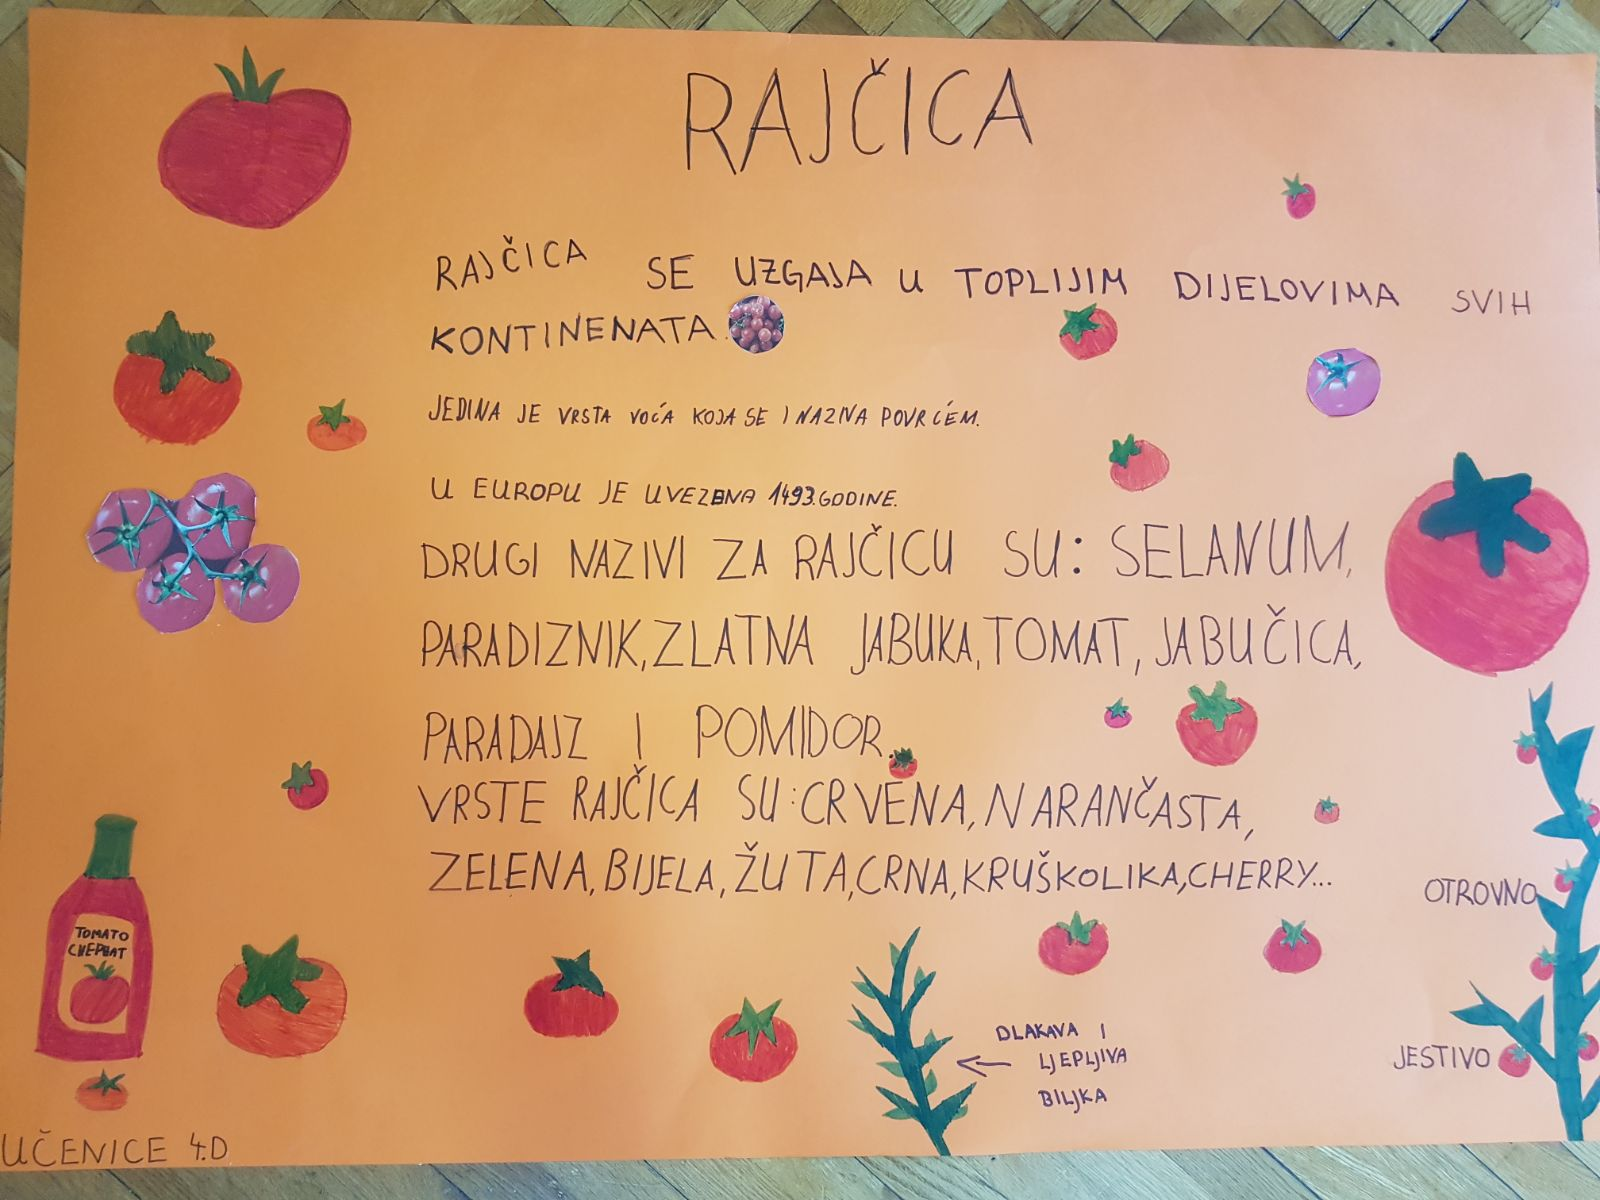 RAJČICA
RAJČICA SE UZGAJA U TOPLIJIM DIJELOVIMA SVIH
KONTINENATA.
JEDINA JE VRSTA VOĆA KOJA SE I NAZIVA POVRĆEM.
U EUROPU JE UVEZENA 1493.GODINE.
DRUGI NAZIVI ZA RAJČICU SU: SELANUM,
PARADIZNIK, ZLATNA JABUKA, TOMAT, JABUČICA,
PARADAJZ I POMIDOR.
VRSTE RAJČICA SU: CRVENA, NARANČASTA,
ZELENA, BIJELA, ŽUTA, CRNA, KRUŠKOLIKA, CHERRY...
OTROVNO
TOMATO
DLAKAVA I
LJEPLJIVA
BILJKA
JESTIVO
UČENICE 4.D